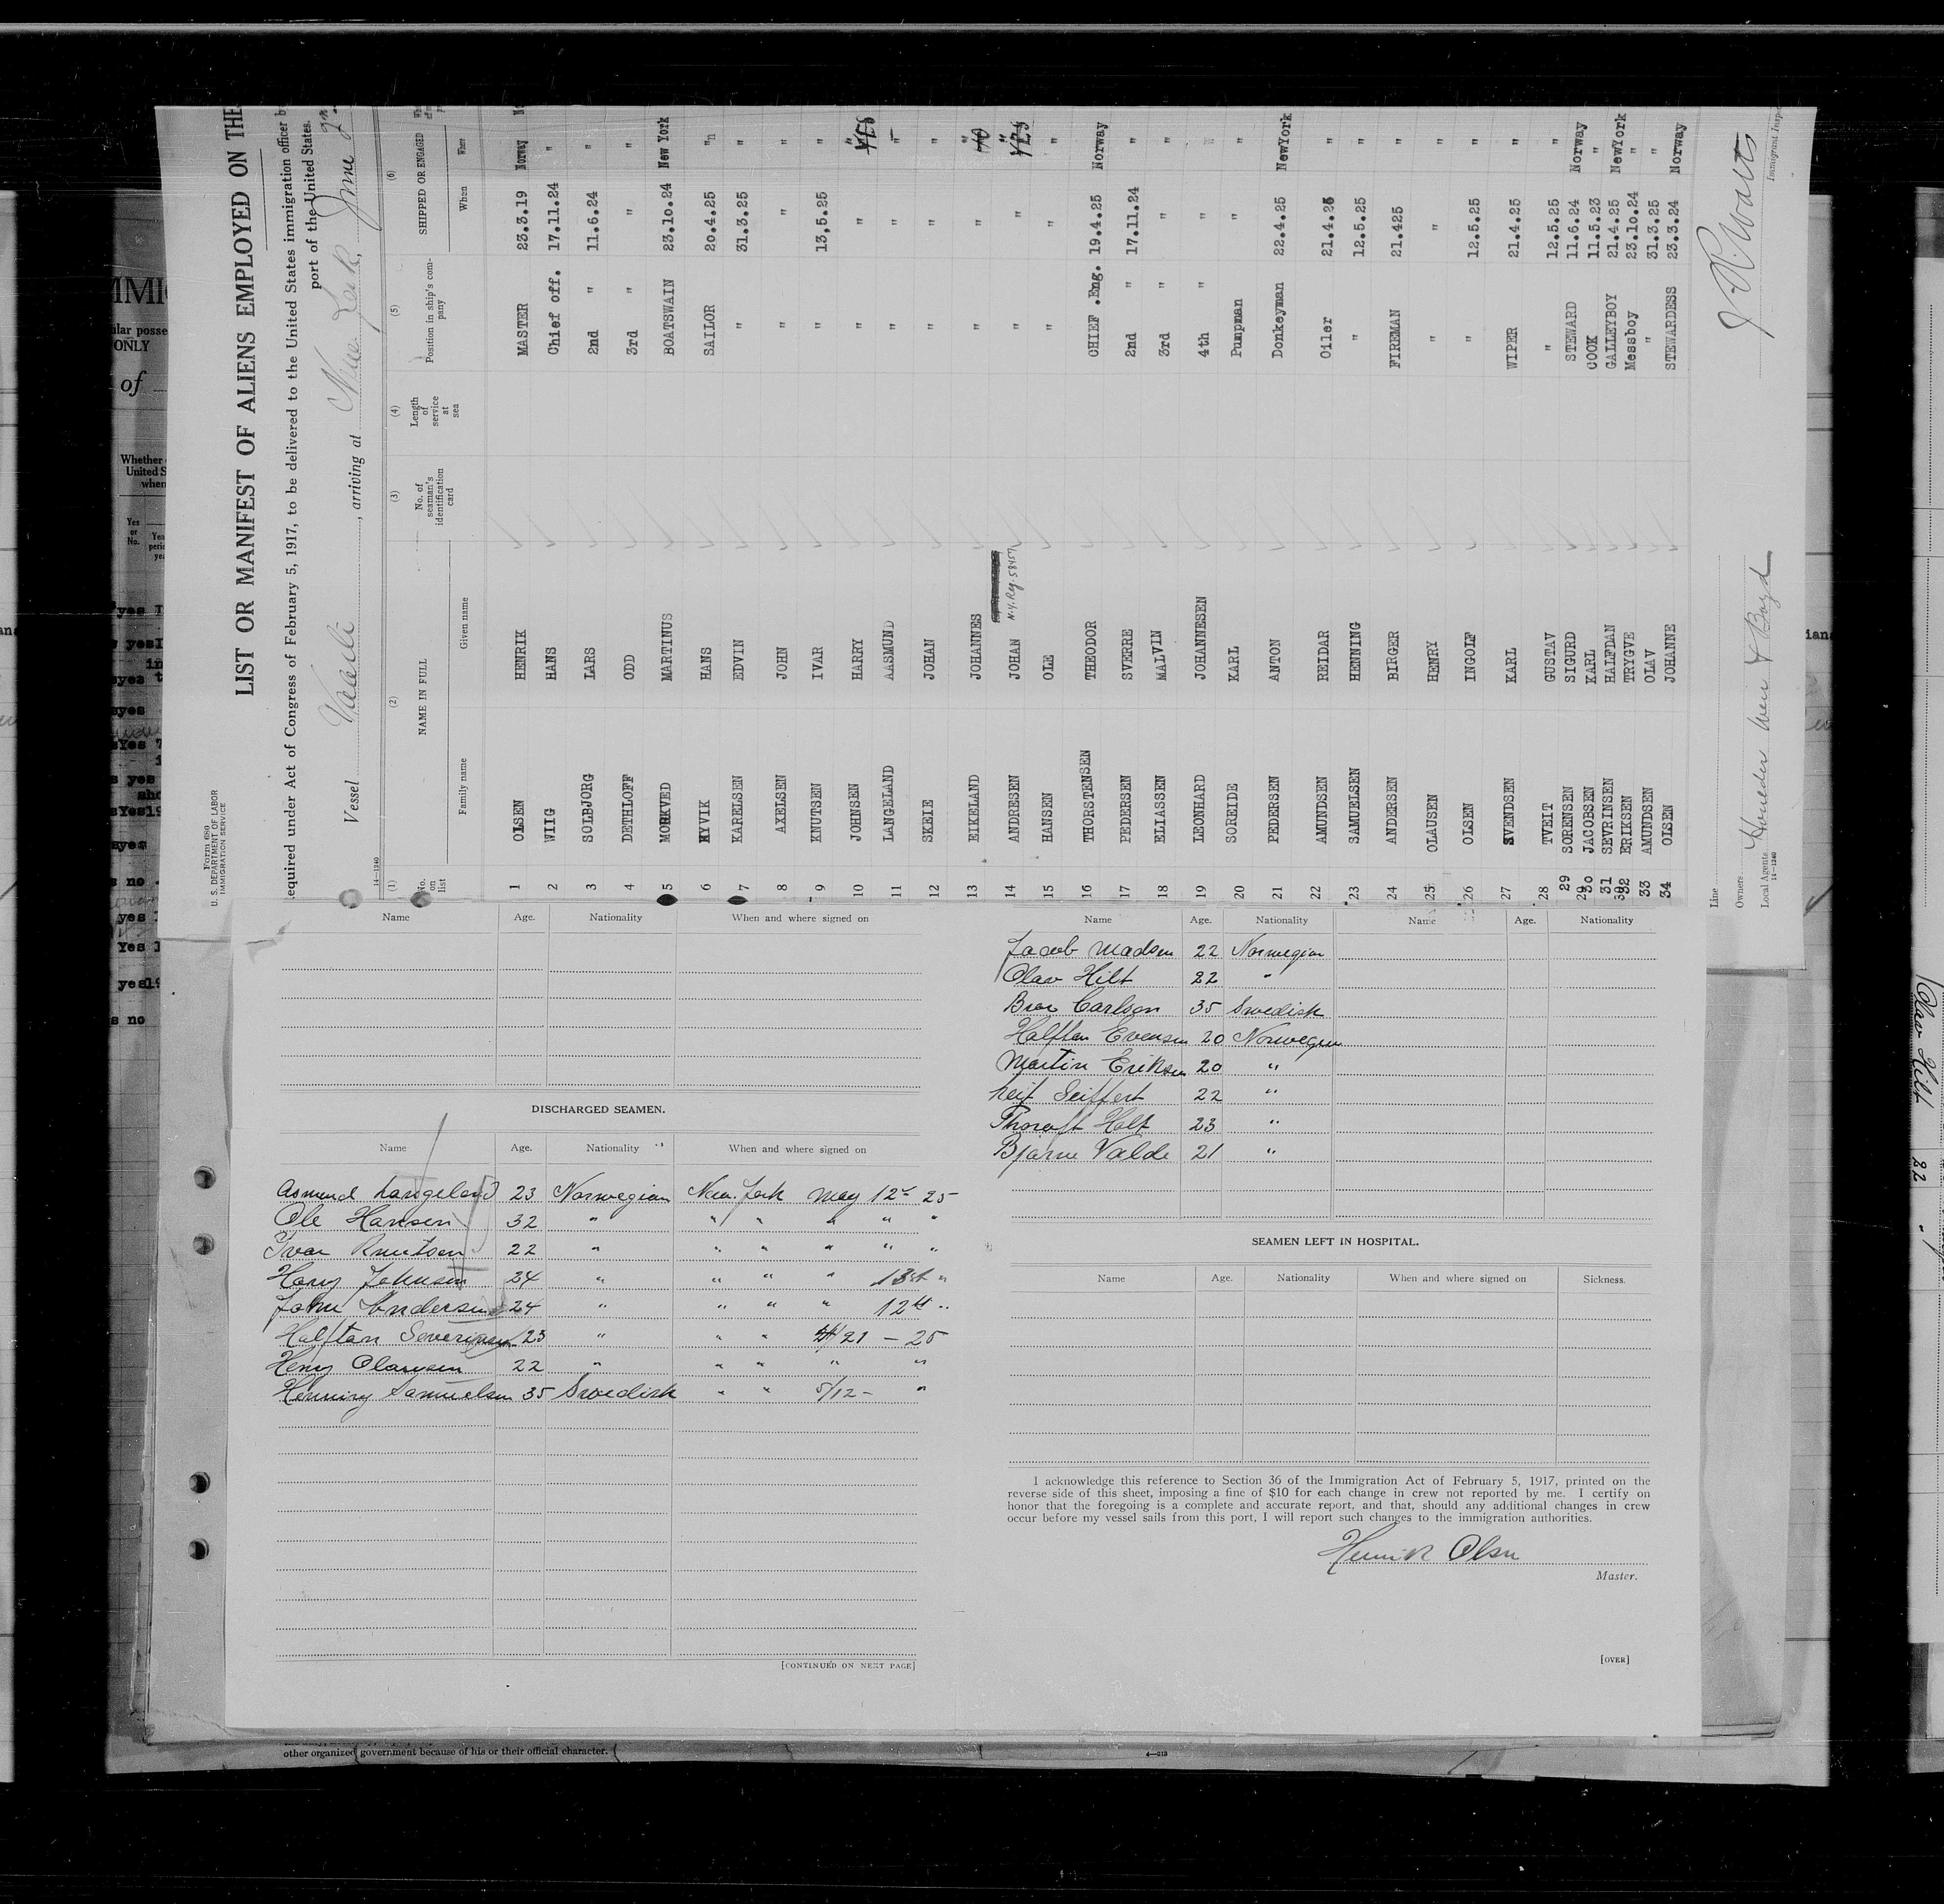 Form 680
U. S. DEPARTMENT OF LABOR
IMMIGRATION SERVICE
LIST OR MANIFEST OF ALIENS EMPLOYED ON THE
equired under Act of Congress of February 5, 1917, to be delivered to the United States immigration officer b
port of the United States.
Vessel , arriving at New York, June 2nd
14—1240
(1) (2) (3) (4) (5) (6)
No. on list NAME IN FULL No. of seaman's identification card Length of service at sea Position in ship's company SHIPPED OR ENGAGED
Family name Given name When
1 OLSEN HENRIK MASTER 23.3.19 Norway
2 WIIG HANS Chief off. 17.11.24 "
3 SOLBJORG LARS 2nd " 11.6.24 "
4 DETHLOFF ODD 3rd " " "
5 MORKVED MARTINUS BOATSWAIN 23.10.24 New York
6 MYVIK HANS SAILOR 20.4.25 "n
7 KARELSEN EDVIN " 31.3.25 "
8 AXELSEN JOHN " " "
9 KNUTSEN IVAR " 13,5.25 "
10 JOHNSEN HARRY " " " YES
11 LANGELAND AASMUND " " "
12 SKEIE JOHAN " " "
13 EIKELAND JOHANNES " " "
14 ANDRESEN JOHAN N.Y. Reg. 58457 " " " YES
15 HANSEN OLE " " "
16 THORSTENSEN THEODOR CHIEF .Eng. 19.4.25 Norway
17 PEDERSEN SVERRE 2nd " 17.11.24 "
18 ELIASSEN MALVIN 3rd " " "
19 LEONHARD JOHANNESEN 4th " " "
20 SOREIDE KARL Pumpman " "
21 PEDERSEN ANTON Donkeyman 22.4.25 NewYork
22 AMUNDSEN REIDAR Oiler 21.4.25 "
23 SAMUELSEN HENNING " 12.5.25 "
24 ANDERSEN BIRGER FIREMAN 21.425 "
25 OLAUSEN HENRY " " "
26 OLSEN INGOLF " 12.5.25 "
27 SVENDSEN KARL WIPER 21.4.25 "
28 TVEIT GUSTAV " 12.5.25 "
29 SORENSEN SIGURD STEWARD 11.6.24 Norway
30 JACOBSEN KARL COOK 11.5.23 "
31 SEVRINSEN HALFDAN GALLEYBOY 21.4.25 NewYork
32 ERIKSEN TRYGVE Messboy 23.10.24 "
33 AMUNDSEN OLAV " 31.3.25 "
34 OLSEN JOHANNE STEWARDESS 23.3.24 Norway
Line
Owners
Local Agents & Boyd
14—1240
Immigrant Inspe
Name Age. Nationality When and where signed on
DISCHARGED SEAMEN.
Name Age. Nationality When and where signed on
Asmund Langeland 23 Norwegian New. York May 12 25
Ole Hansen 32 " " " " " "
Ivar Knutsen 22 " " " " " "
Harry Johnsen 24 " " " " 13th "
John Andersen 24 " " " " 12th "
Halftan Severinsen 23 " " " 21 — 25
Henry Olausen 22 " " " " "
Henning Samuelsen 35 Swedish " " 5/12 — "
[CONTINUED ON NEXT PAGE]
Name Age. Nationality Name Age. Nationality
Jacob Madsen 22 Norwegian
Olav Hilt 22 "
Bror Carlson 35 Swedish
Halftan Evensen 20 Norwegian
Martin Eriksen 20 "
Leif Seiffert 22 "
Thoralf Holt 23 "
Bjarne Valde 21 "
SEAMEN LEFT IN HOSPITAL.
Name Age. Nationality When and where signed on Sickness.
I acknowledge this reference to Section 36 of the Immigration Act of February 5, 1917, printed on the
reverse side of this sheet, imposing a fine of $10 for each change in crew not reported by me. I certify on
honor that the foregoing is a complete and accurate report, and that, should any additional changes in crew
occur before my vessel sails from this port, I will report such changes to the immigration authorities.
Henrik Olsen
Master.
[OVER]
other organized government because of his or their official character.
Olav Hilt 22 "